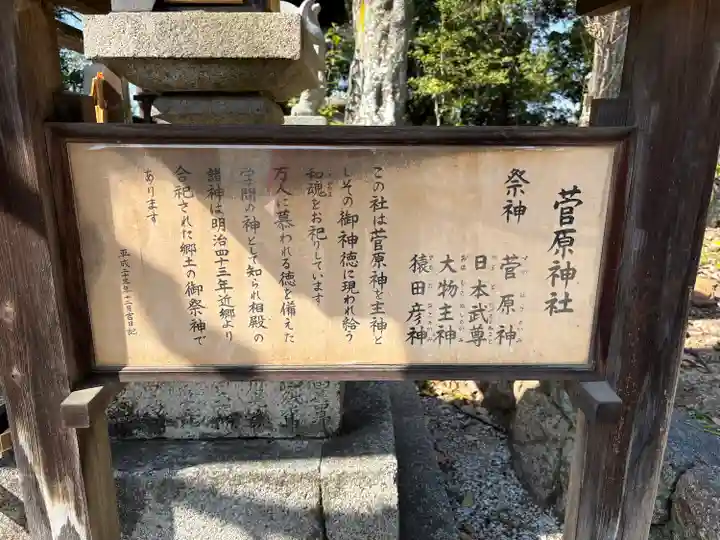 菅原神社
祭神
菅原神
日本武尊
大物主神
猿田彦神
この社は菅原神を主神と
しその御神徳に現われ給う
和魂をお祀りしています
万人に慕われる徳を備えた
学問の神として知られ相殿の
諸神は明治四十三年近郷より
合祀された郷土の御祭神で
あります